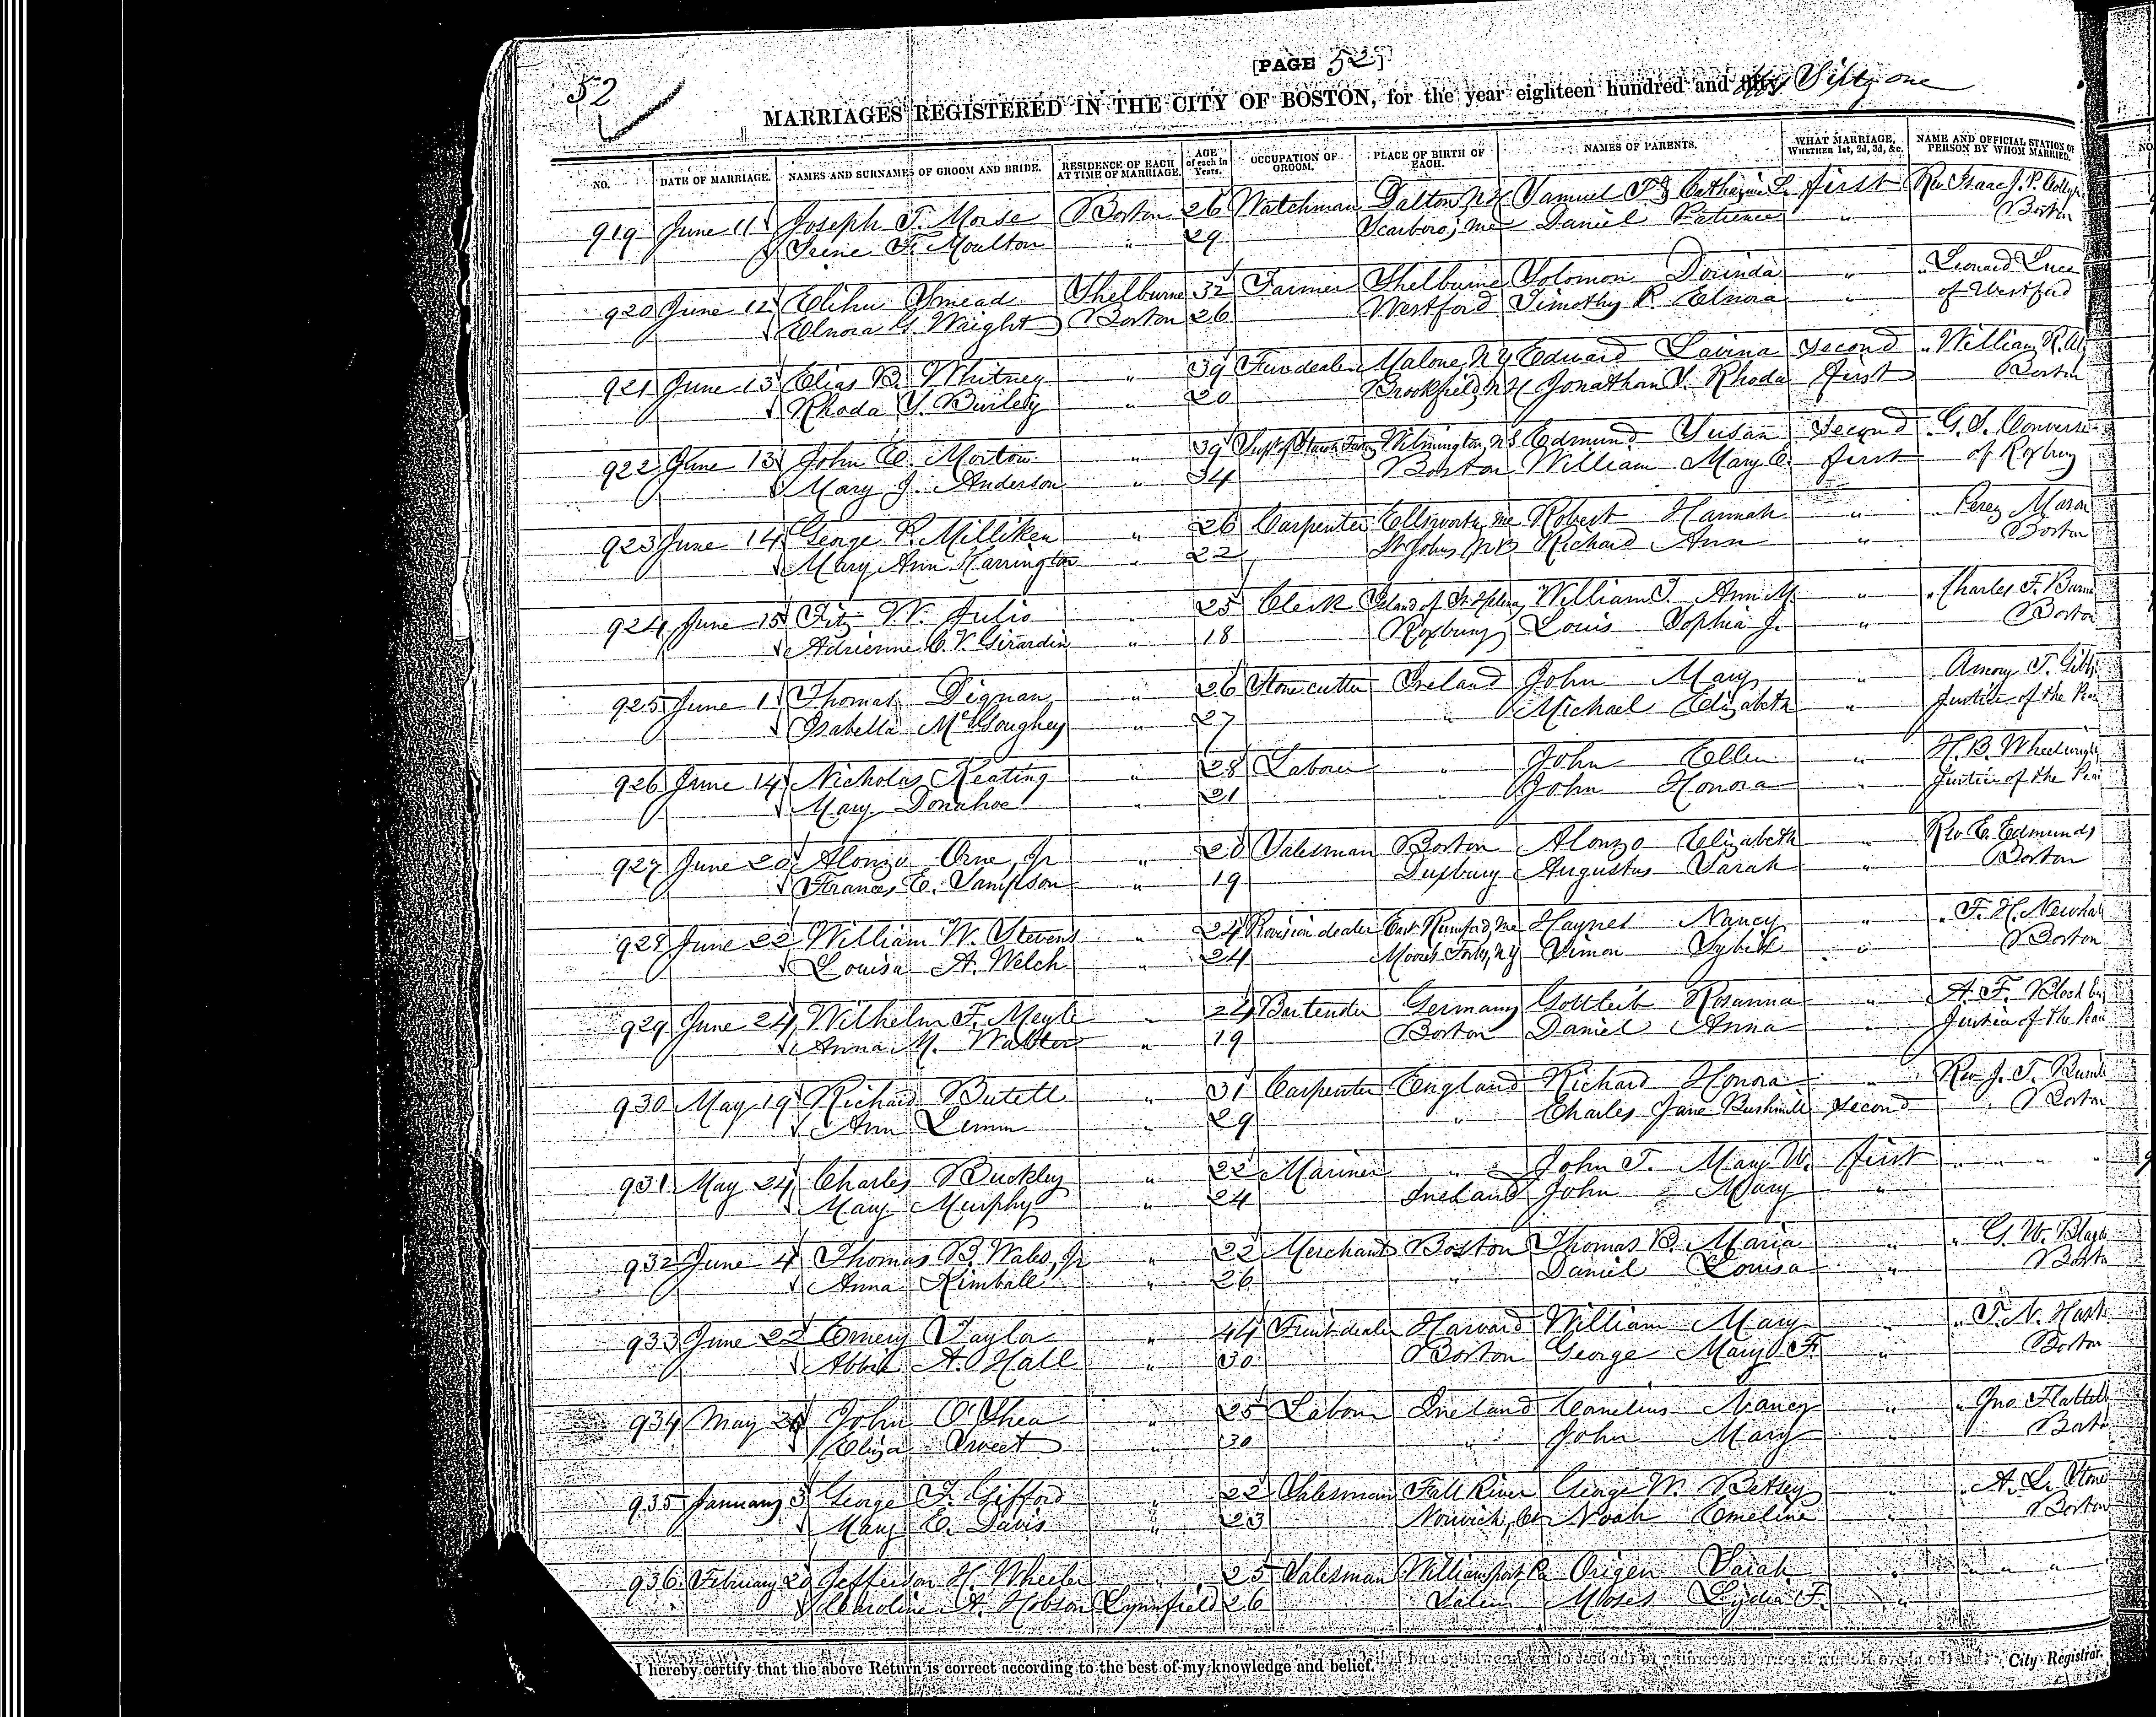 [PAGE 52]
52
MARRIAGES REGISTERED IN THE CITY OF BOSTON, for the year eighteen hundred and fifty Sixty one
NO. DATE OF MARRIAGE. NAMES AND SURNAMES OF GROOM AND BRIDE. RESIDENCE OF EACH AT TIME OF MARRIAGE. AGE of each in Years. OCCUPATION OF GROOM. PLACE OF BIRTH OF EACH. NAMES OF PARENTS. WHAT MARRIAGE, WHETHER 1st, 2d, 3d, &c. NAME AND OFFICIAL STATION OF PERSON BY WHOM MARRIED.
919 June 11 Joseph T. Morse Boston 26 Watchman Dalton, N.H Samuel F. Catharine L. first Rev Isaac J. P.
Irene F. Moulton " 29 Scarboro, Me Daniel Patience " Boston
920 June 12 Elihu Smead Shelburne 32 Farmer Shelburne Solomon Dorinda " " Leonard Luce
Elnora G. Wright Boston 26 Westford Timothy P. Elnora " of Westford
921 June 13 Elias B. Whitney " 39 Malone, N.Y Edward Lavina second " William R.
Rhoda Y. Burley " 20 Brookfield, N.H Jonathan Y. Rhoda first Boston
922 June 13 John E. Morton " 39 Supt of Starch Wilmington, Edmund Susan second " G. S. Converse
Mary J. Anderson " 34 Boston William Mary C. first of Roxbury
923 June 14 George P. Milliken " 26 Carpenter Ellsworth, Me Robert Hannah " " Perez Mason
Mary Ann Harrington " 22 St Johns N.B Richard Ann " Boston
924 June 15 Fitz W. Julio " 25 Clerk Island of St Helena William T. Ann M. " " Charles F.
Adrienne C. V. Girardin " 18 Roxbury Louis Sophia J. " Boston
925 June 1 Thomas Dignan " 26 Stone cutter Ireland John Mary " Amory T.
Isabella McGoughey " 27 " Michael Elizabeth " Justice of the Pea
926 June 14 Nicholas Keating " 28 Laborer " John Ellen " H. B. Wheelwright
Mary Donahoe " 21 " John Honora " Justice of the Pea
927 June 20 Alonzo Orne, Jr " 20 Salesman Boston Alonzo Elizabeth " Rev E. Edmunds
Frances E. Sampson " 19 Duxbury Augustus Sarah " Boston
928 June 22 William W. Stevens " 24 Provision dealer East Rumford, Me Haynes Nancy " " F. H. Newhall
Louisa A. Welch " 24 Moores Forks, N.Y Simon Sybil " Boston
929 June 24 Wilhelm F. Mayle " 24 Bartender Germany Gottleib Rosanna " A. F.
Anna M. Walter " 19 Boston Daniel Anna " Justice of the Peac
930 May 19 Richard Butell " 31 Carpenter England Richard Honora " Rev J. T.
Ann Lemm " 29 " Charles Jane Bushnill second Boston
931 May 24 Charles Buckley " 22 Mariner " John T. Mary W. first " " " "
Mary Murphy " 24 Ireland John Mary "
932 June 4 Thomas B. Wales, Jr " 22 Merchant Boston Thomas B. Maria " " G. W.
Anna Kimball " 26 " Daniel Louisa " Bosto
933 June 22 Emery Taylor " 44 Fruit dealer Harvard William Mary " " T. N.
Abbie A. Hall " 30 Boston George Mary F. " Boston
934 May John O'Shea " 25 Labour Ireland Cornelius Nancy " " Jno.
Eliza Sweet " 30 " John Mary " Bosto
935 January 3 George F. Gifford " 22 Salesman Fall River George M. Betsey " " A. L. Stone
Mary E. Davis " 23 Norwich, Ct Noah Emeline " Boston
936 February 20 Jefferson H. Wheeler " 25 Salesman Williamsport Pa Origen Sarah " " " "
Caroline A. Hobson Lynnfield 26 Salem Moses Lydia F. "
I hereby certify that the above Return is correct according to the best of my knowledge and belief.
City Registrar.